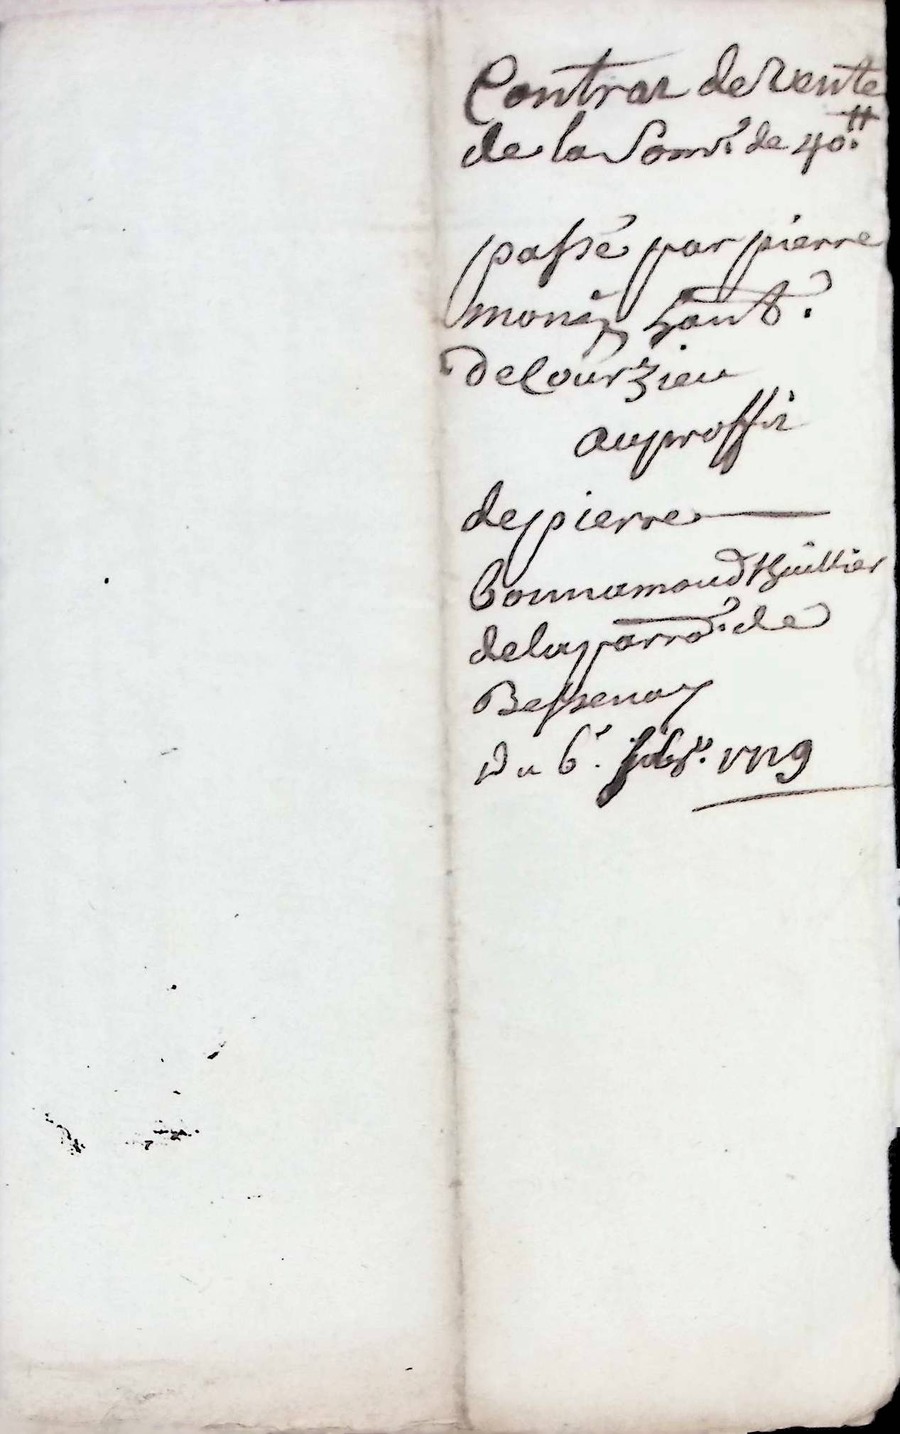 Contrat de vente
de la Som.e de 40.ᵗᵗ
passé par pierre
de Courzieu
au proffit
de pierre
bonnamoud thuillier
de la parro.e de
Bessenay
Du 6.e 1729